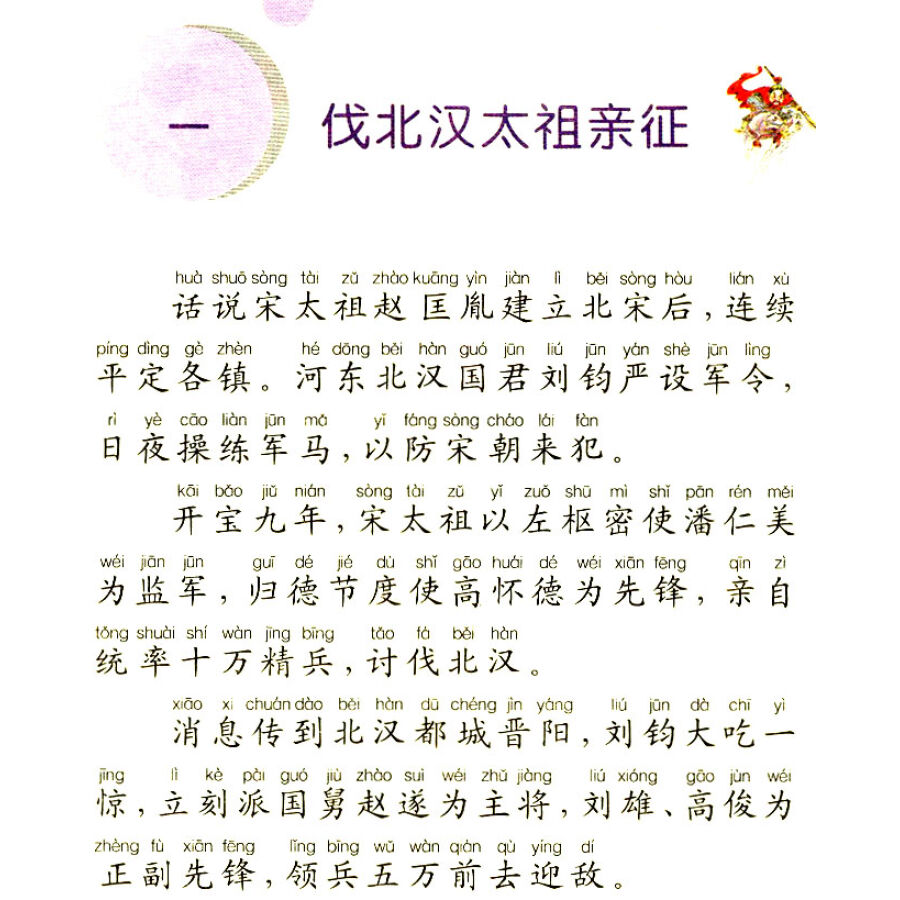 一 伐北汉太祖亲征
huà shuō sòng tài zǔ zhào kuāng yìn jiàn lì běi sòng hòu lián xù
话说宋太祖赵匡胤建立北宋后,连续
píng dìng gè zhèn hé dōng běi hàn guó jūn liú jūn yán shè jūn lìng
平定各镇。河东北汉国君刘钧严设军令,
rì yè cāo liàn jūn mǎ yǐ fáng sòng cháo lái fàn
日夜操练军马,以防宋朝来犯。
kāi bǎo jiǔ nián sòng tài zǔ yǐ zuǒ shū mì shǐ pān rén měi
开宝九年,宋太祖以左枢密使潘仁美
wéi jiān jūn guī dé jié dù shǐ gāo huái dé wéi xiān fēng qīn zì
为监军,归德节度使高怀德为先锋,亲自
tǒng shuài shí wàn jīng bīng tǎo fá běi hàn
统率十万精兵,讨伐北汉。
xiāo xi chuán dào běi hàn dū chéng jìn yáng liú jūn dà chī yì
消息传到北汉都城晋阳,刘钧大吃一
jīng lì kè pài guó jiù zhào suì wéi zhǔ jiàng liú xióng gāo jùn wéi
惊,立刻派国舅赵遂为主将,刘雄、高俊为
zhèng fù xiān fēng lǐng bīng wǔ wàn qián qù yíng dí
正副先锋,领兵五万前去迎敌。